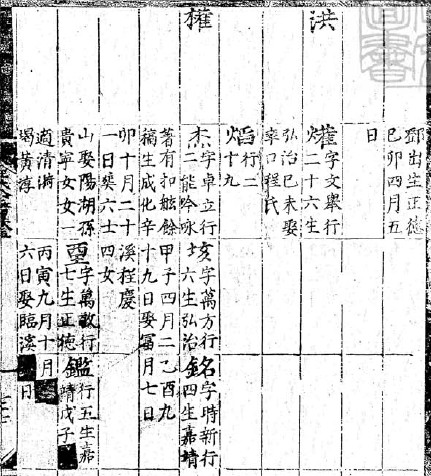 洪
鄧出生正德
己卯四月五
日
字文舉行
二十六生
弘治己未娶
率口程氏
熖行二
十九
杰字卓立行
二能吟咏
著有扣舷餘
稿生成化辛
卯十月二十
一日葬六士
山娶陽湖孫
貴寧女女一
適清漪
塌黃淳
垓字萬方行
六生弘治
甲子四月二
十九日娶冨
溪程慶
四女
壐字萬敵行
七生正德
丙寅九月十
六日娶臨溪
銘字時新行
四生嘉靖
乙酉九
月七日
鑑行五生嘉
靖戊子
月
日